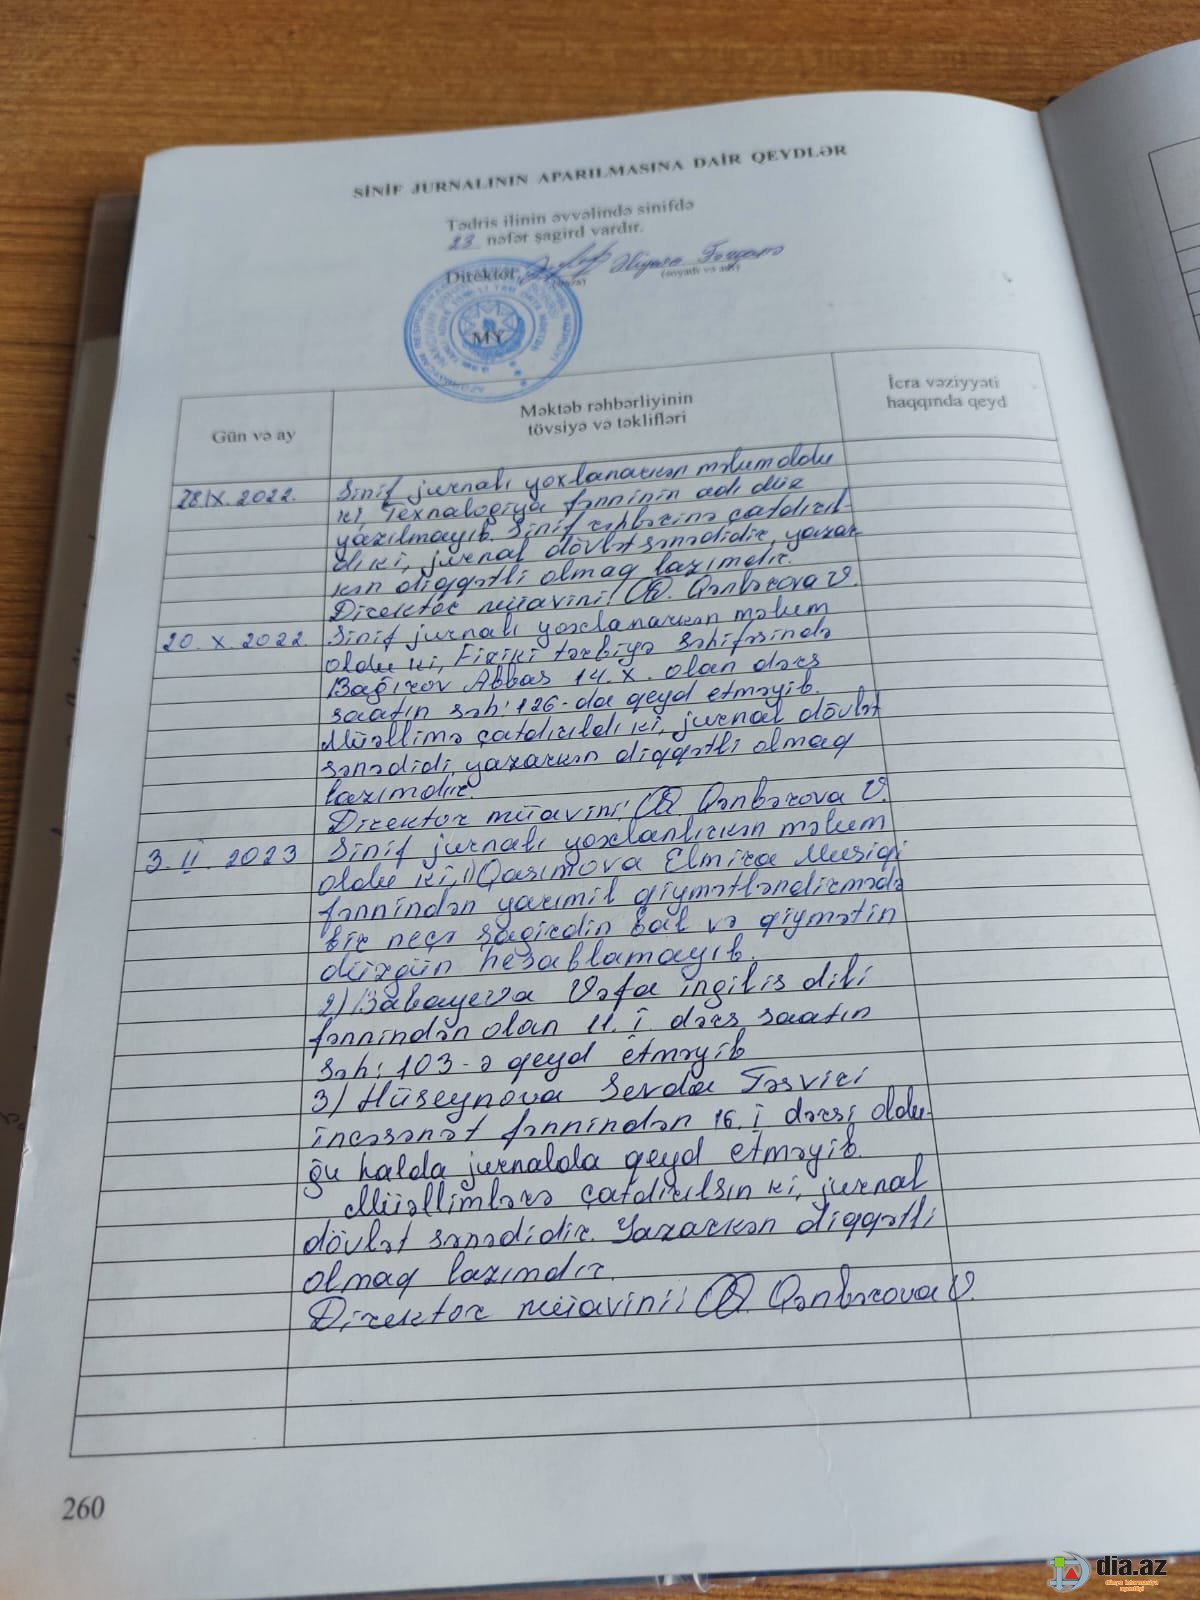 SİNİF JURNALININ APARILMASINA DAİR QEYDLƏR
Tədris ilinin əvvəlində sinifdə
23 nəfər şagird vardır.
Direktor
(imza) (soyadı və adı)
MY
Gün və ay
Məktəb rəhbərliyinin
tövsiyə və təklifləri
İcra vəziyyəti
haqqında qeyd
28.IX.2022.
Sinif jurnalı yoxlanarkən məlum oldu
ki, Texnalogiya fənninin adı düz
yazılmayıb. Sinif rəhbərinə çatdırıl-
dı ki, jurnal dövlət sənədidir, yazar-
kən diqqətli olmaq lazımdır.
Direktor müavini: Qənbərova V.
20. X. 2022.
Sinif jurnalı yoxlanarkən məlum
oldu ki, Fiziki tərbiyə səhifəsində
Bağırov Abbas 14. X. olan dərs
saatın səh: 126-da qeyd etməyib.
Müəllimə çatdırıldı ki, jurnal dövlət
sənədidi, yazarkən diqqətli olmaq
lazımdır.
Direktor müavini: Qənbərova V.
3. II. 2023
Sinif jurnalı yoxlanlırkən məlum
oldu ki, 1) Qasımova Elmira Musiqi
fənnindən yarımil qiymətləndirmədə
bir neçə şagirdin bal və qiymətin
düzgün hesablamayıb.
2) Babayeva Vəfa ingilis dili
fənnindən olan 11. I. dərs saatın
səh: 103-ə qeyd etməyib
3) Hüseynova Sevda Təsviri
incəsənət fənnindən 16. I dərsi oldu-
ğu halda jurnalda qeyd etməyib.
Müəllimlərə çatdırılsın ki, jurnal
dövlət sənədidir. Yazarkən diqqətli
olmaq lazımdır.
Direktor müavini: Qənbərova V.
260
dia.az